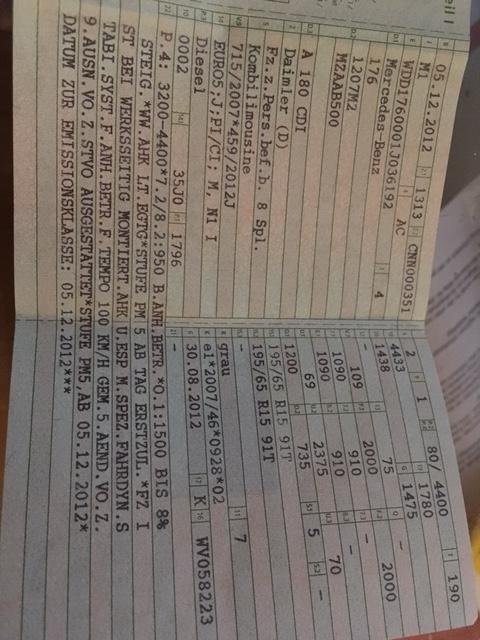 eil I
05.12.2012 1313 CNN000351
M1 AC
WDD1760001J036192 4
Mercedes-Benz
176
1207M2
MZAAB500
A 180 CDI
Daimler (D)
Fz.z.Pers.bef.b. 8 Spl.
Kombilimousine
715/2007*459/2012J
EURO5;J;PI/CI; M, N1 I
Diesel
0002 35J0 1796
190
2 1 80/ 4400
4433 1780
1438 75 1475
2000 – 2000
109 910 –
1090 910 70
1090 2375 –
69 735 5 –
1200
195/65 R15 91T
195/65 R15 91T
–
grau 7
e1*2007/46*0928*02
30.08.2012 K WV058223
–
P.4: 3200-4400*7.2/8.2:950 B.ANH.BETR.*O.1:1500 BIS 8%
STEIG.*WW.AHK LT.EGTG*STUFE PM 5 AB TAG ERSTZUL.*FZ I
ST BEI WERKSSEITIG MONTIERT.AHK U.ESP M.SPEZ.FAHRDYN.S
TABI.SYST.F.ANH.BETR.F.TEMPO 100 KM/H GEM.5.AEND.VO.Z.
9.AUSN.VO.Z.STVO AUSGESTATTET*STUFE PM5,AB 05.12.2012*
DATUM ZUR EMISSIONSKLASSE: 05.12.2012***